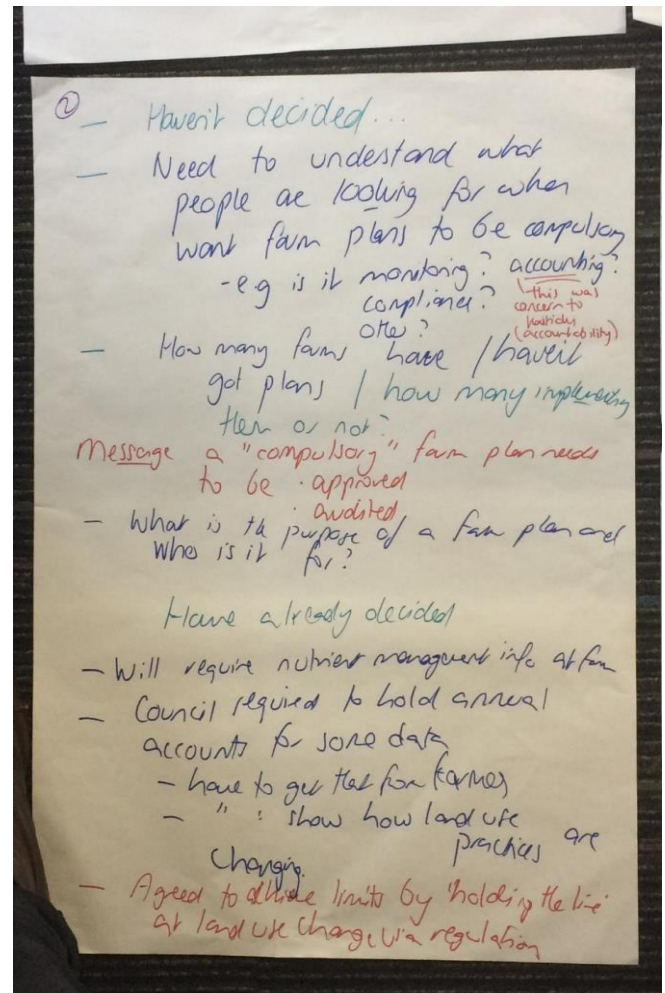 ②
— Haven't decided...
— Need to understand what
people are looking for when
want farm plans to be compulsory
- e.g is it monitoring? accounting?
compliance?
other?
this was
concern to
(accountability)
— How many farms have / haven't
got plans / how many implementing
them or not?
Message a "compulsory" farm plan needs
to be · approved
· audited
- What is the purpose of a farm plan and
who is it for?
Have already decided
- Will require nutrient management info at farm
- Council required to hold annual
accounts for some data
- have to get that from farmers
- " : show how land use
practices are
changing.
- Agreed to achieve limits by 'holding the line'
at land use change via regulation